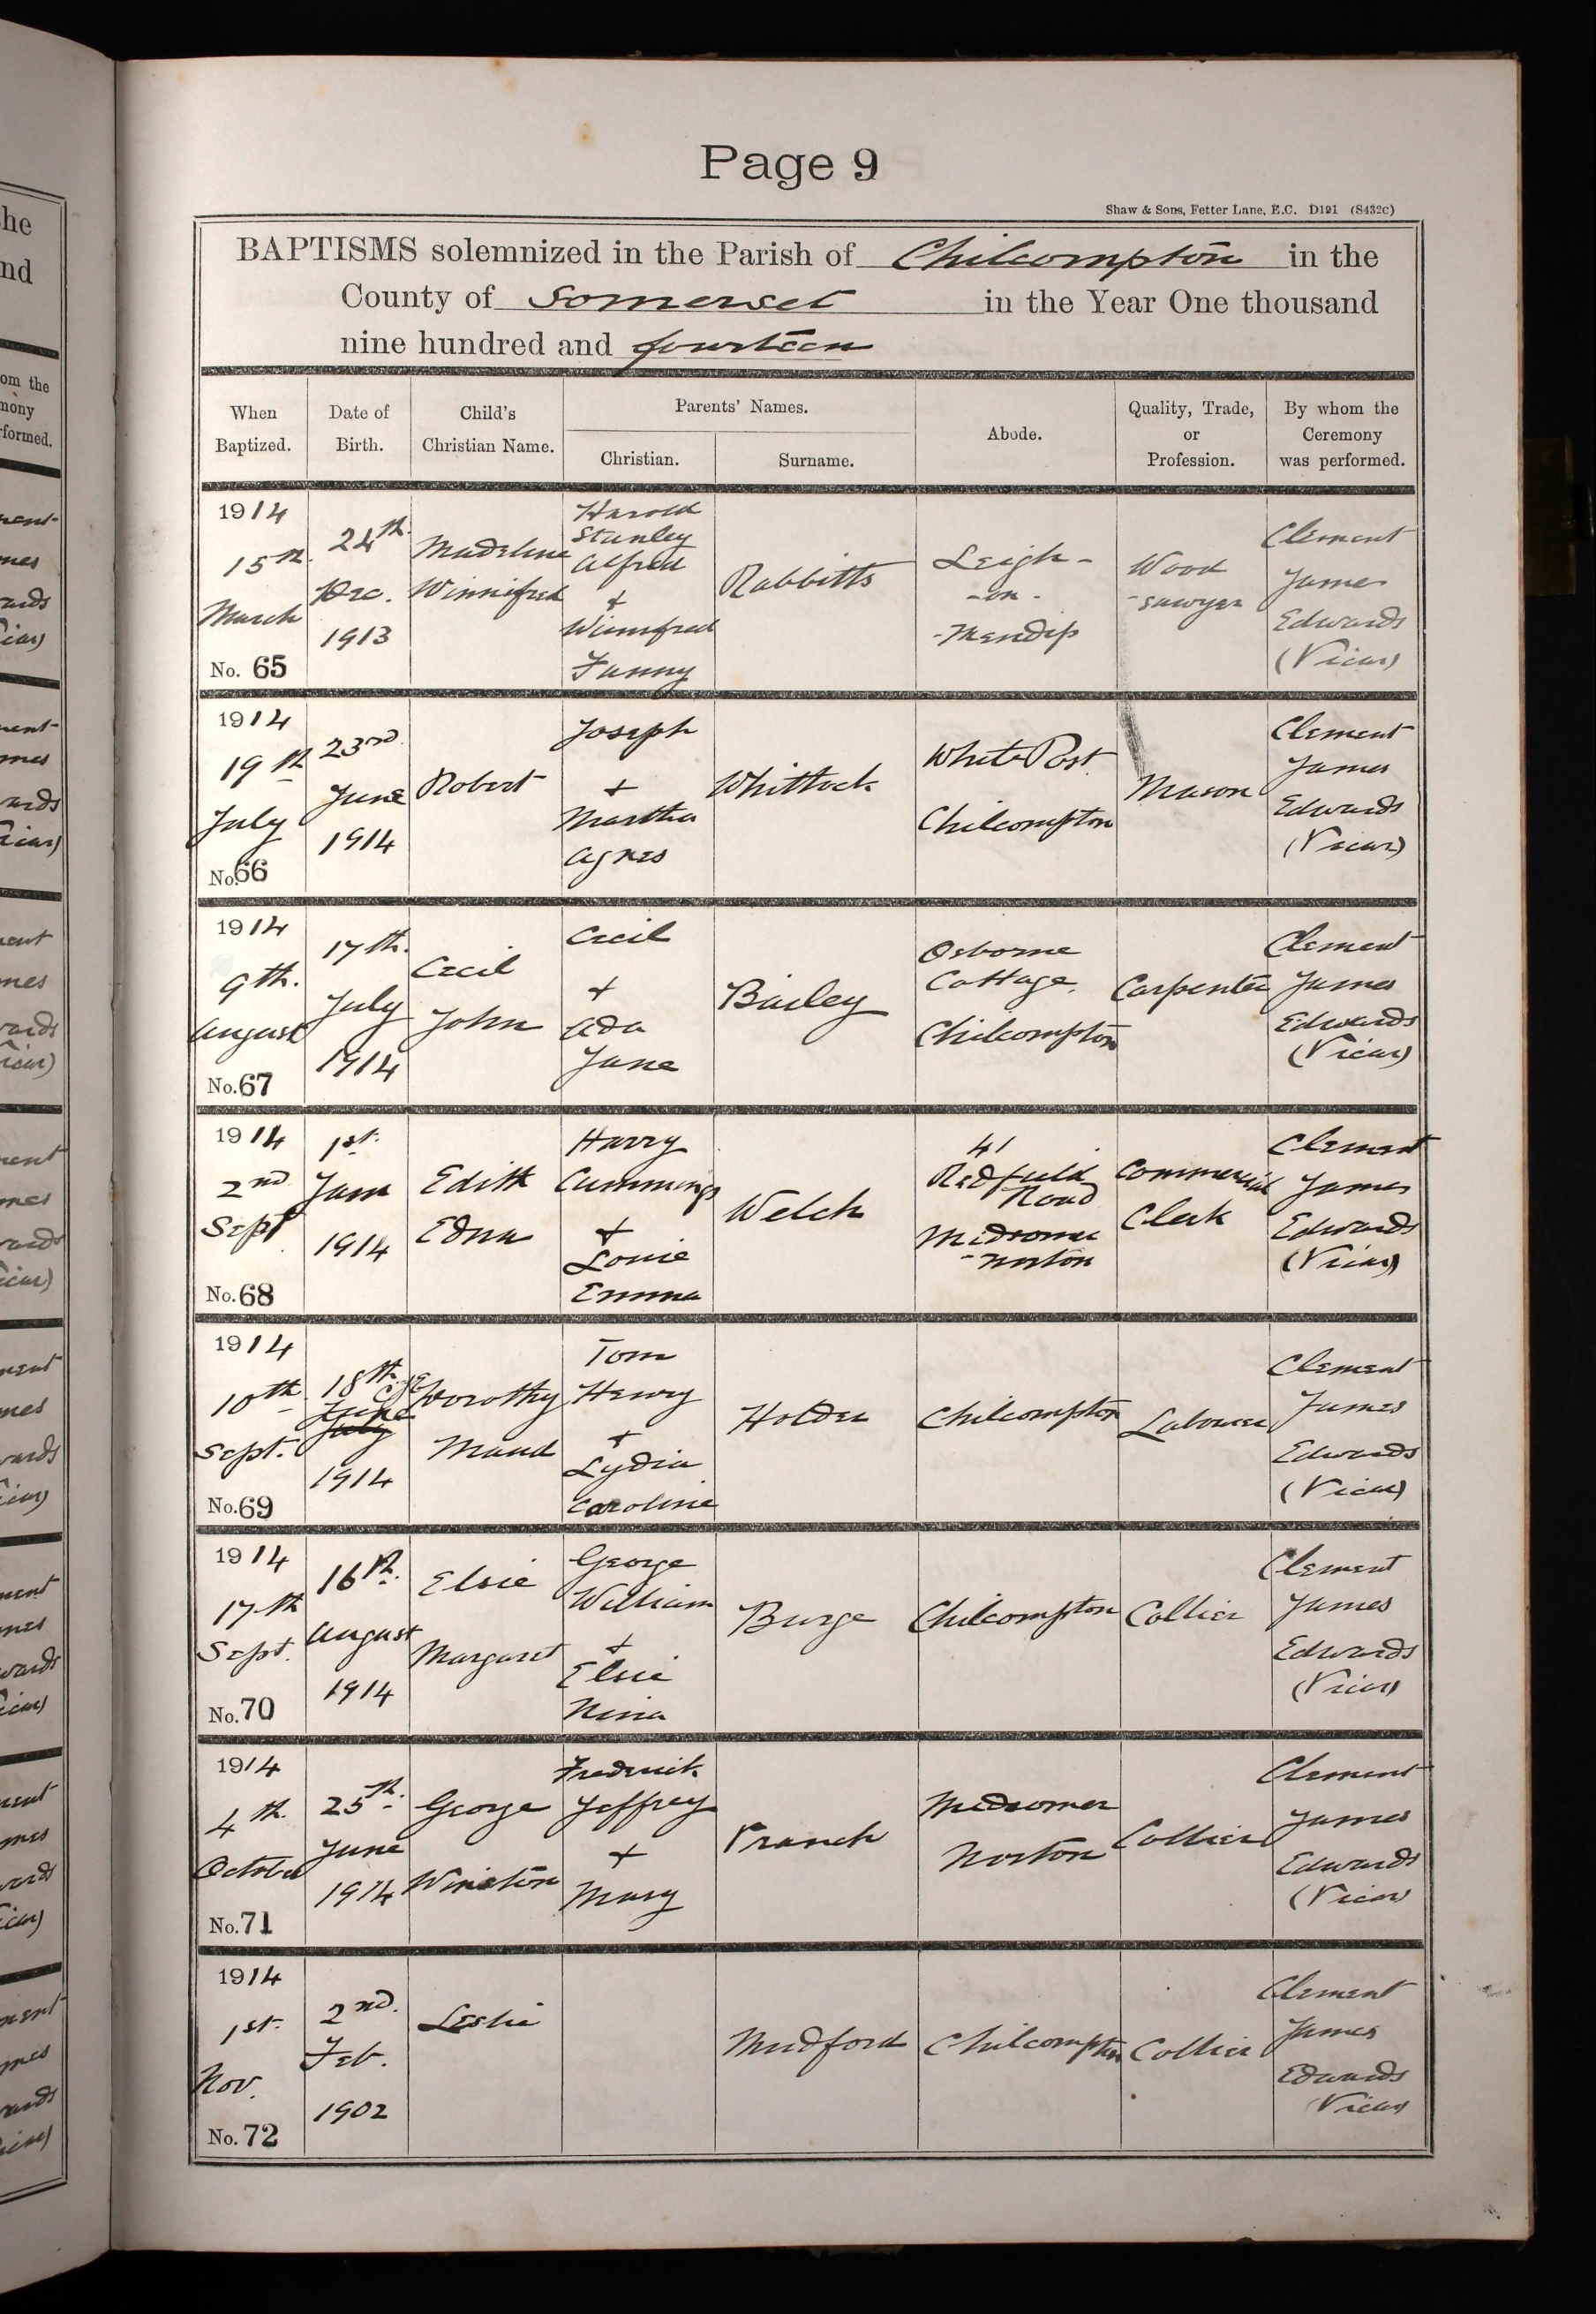 Page 9
Shaw & Sons, Fetter Lane, E.C. D191 (S432C)
BAPTISMS solemnized in the Parish of Chilcompton in the
County of Somerset in the Year One thousand
nine hundred and fourteen
When Baptized.
Date of Birth.
Child's Christian Name.
Parents' Names.
Christian.
Surname.
Abode.
Quality, Trade, or Profession.
By whom the Ceremony was performed.
1914
15th
March
No. 65
24th
Dec.
1913
Madeline
Winnifred
Harold
Stanley
Alfred
+
Winnifred
Fanny
Rabbitts
Leigh-
-on-
-Mendip
Wood
-sawyer
Clement
James
Edwards
(Vicar)
1914
19th
July
No. 66
23rd
June
1914
Robert
Joseph
+
Martha
Agnes
Whittock
White Post
Chilcompton
Mason
Clement
James
Edwards
(Vicar)
1914
9th.
August
No. 67
17th.
July
1914
Cecil
John
Cecil
+
Ada
Jane
Bailey
Osborne
Cottage
Chilcompton
Carpenter
Clement
James
Edwards
(Vicar)
1914
2nd
Sept
No. 68
1st.
1914
Edith
Edna
Harry
Cummings
+
Louie
Emma
Welch
41
Redfield
Road
Midsomer
-Norton
Commercial
Clerk
Clement
James
Edwards
(Vicar)
1914
10th
Sept.
No. 69
18th
CJE
June
July
1914
Dorothy
Maud
Tom
Henry
+
Lydia
Caroline
Holder
Chilcompton
Labourer
Clement
James
Edwards
(Vicar)
1914
17th
Sept.
No. 70
16th.
August
1914
Elsie
Margaret
George
William
+
Elsie
Nina
Burge
Chilcompton
Collier
Clement
James
Edwards
(Vicar)
1914
4th.
October
No. 71
25th.
June
1914
George
Winston
Frederick
Jeffrey
+
Mary
Pranch
Midsomer
Norton
Collier
Clement
James
Edwards
(Vicar)
1914
1st.
Nov.
No. 72
2nd.
Feb.
1902
Leslie
Mudford
Chilcompton
Collier
Clement
James
Edwards
(Vicar)